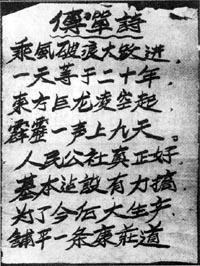 傳單詩
乘風破浪大跃进，
一天等于二十年，
東方巨龙凌空起
霹靂一声上九天。
人民公社真正好
基本建設有力搞
为了今后大生产
鋪平一条康莊道